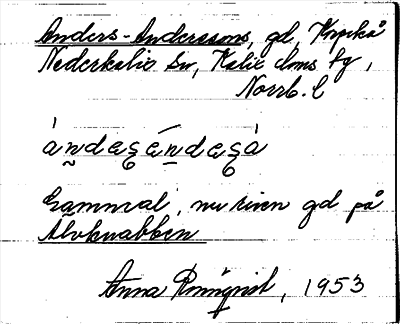 Anders-Anderssons, gd, Korpikå
Nederkalix sn, Kalix doms fg,
Norrb. l
Gammal, nu riven gd på
Alvknabben
Anna Rönnqvist, 1953